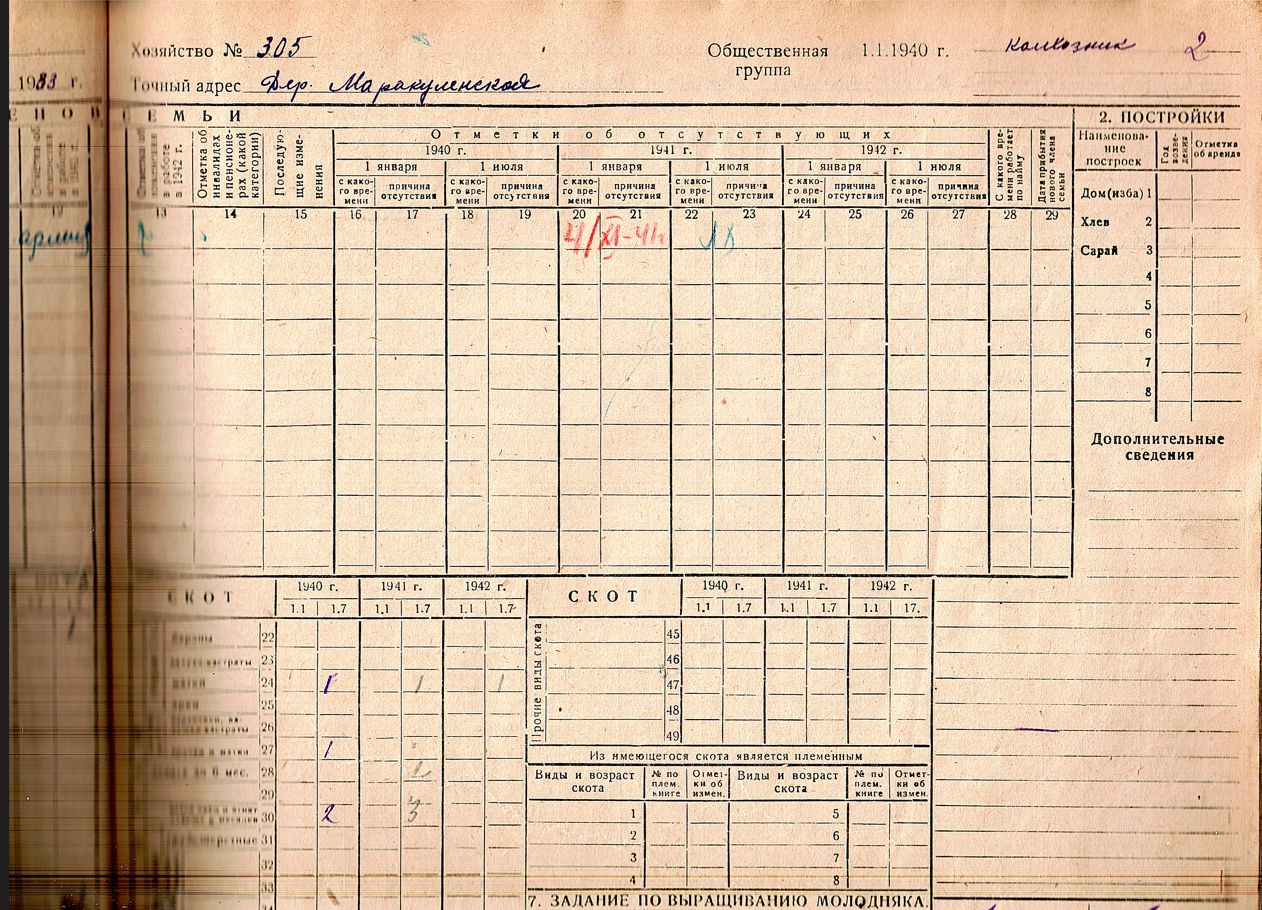 Хозяйство № 305
Общественная группа 1.1.1940 г. колхозник 2
1933 г.
Точный адрес Дер. Маракуленской
СЕМЬИ
2. ПОСТРОЙКИ
в работе в 1942 г.
Отметка об инвалидах и пенсионерах (какой категории)
Последующие изменения
Отметки об отсутствующих
1940 г. 1941 г. 1942 г.
1 января 1 июля 1 января 1 июля 1 января 1 июля
с како-го вре-мени причина отсутствия с како-го вре-мени причина отсутствия с како-го вре-мени причина отсутствия с како-го вре-мени причина отсутствия с како-го вре-мени причина отсутствия с како-го вре-мени причина отсутствия
С какого времени работает по найму
Дата прибытия нового члена семьи
Наименова-ние построек
Год возве-дения
Отметка об аренде
12 13 14 15 16 17 18 19 20 21 22 23 24 25 26 27 28 29
4/XI-41
Дом(изба) 1
Хлев 2
Сарай 3
4
5
6
7
8
Дополнительные
сведения
СКОТ
1940 г. 1941 г. 1942 г.
1.1 1.7 1.1 1.7 1.1 1.7
22
23
матки 24 1 1 1
25
26
27 1
до 6 мес. 28 1
29
30 2 3
31
32
33
СКОТ
1940 г. 1941 г. 1942 г.
1.1 1.7 1.1 1.7 1.1 17.
Прочие виды скота
45
46
47
48
49
Из имеющегося скота является племенным
Виды и возраст скота № по плем. книге Отмет-ки об измен. Виды и возраст скота № по плем. книге Отмет-ки об измен.
1 5
2 6
3 7
4 8
7. ЗАДАНИЕ ПО ВЫРАЩИВАНИЮ МОЛОДНЯКА.